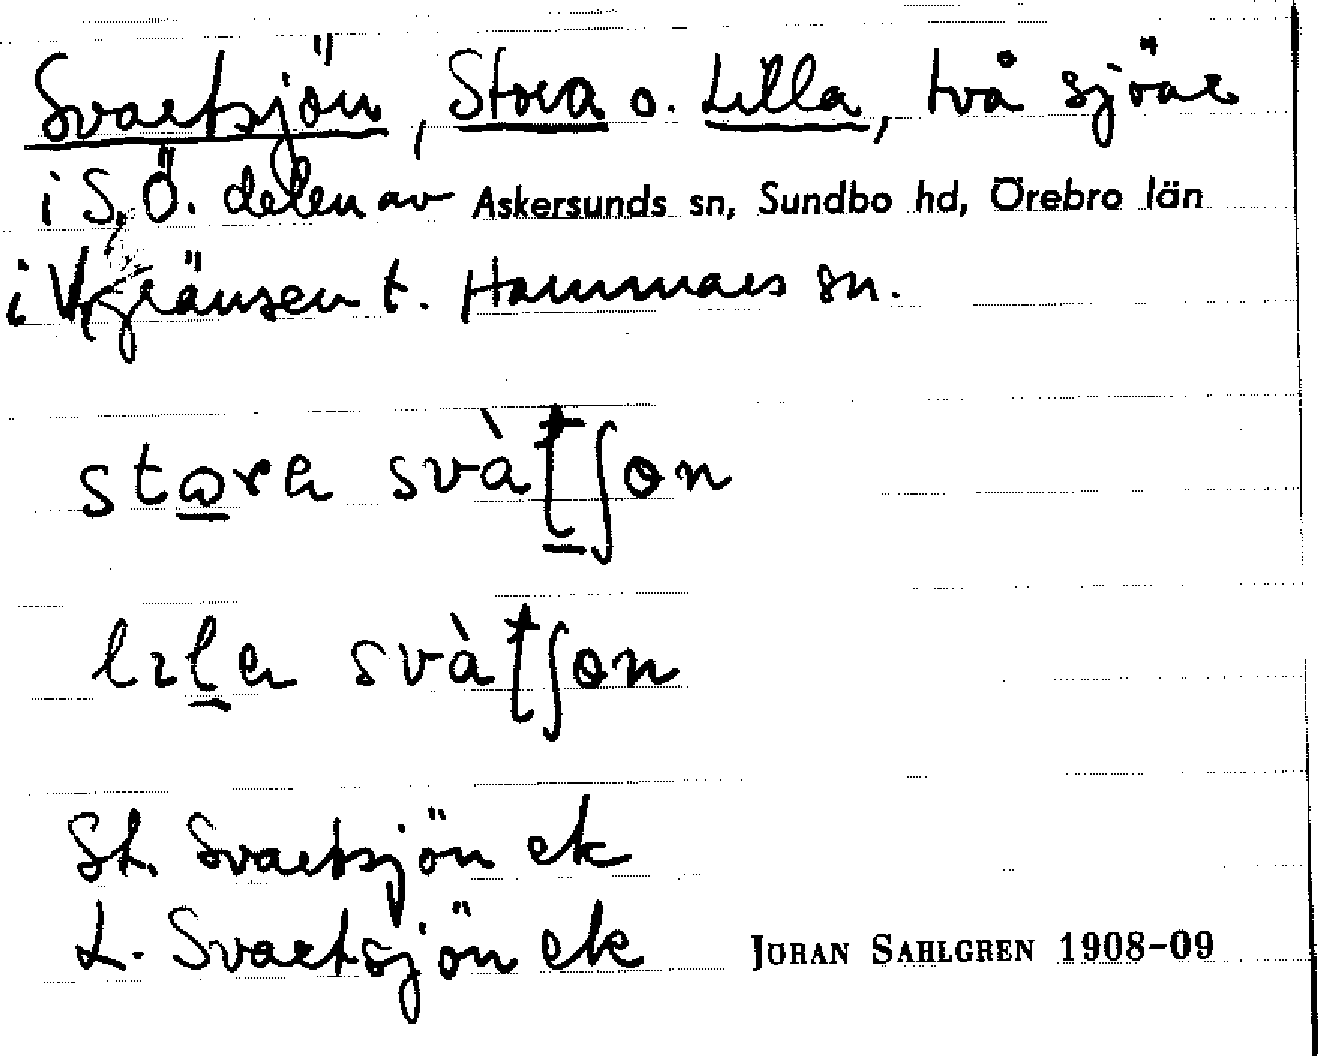 Svartsjön, Stora o. Lilla, två sjöar
i S.Ö. delen av Askersunds sn, Sundbo hd, Örebro län
i V gränsen t. Hammars sn.
stora svàtʃɵn
lıla svàtʃɵn
St. Svartsjön ek
L. Svartsjön ek
JÖRAN SAHLGREN 1908-09